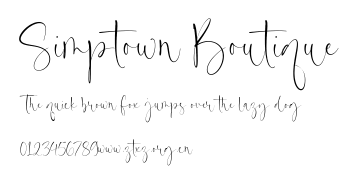 Simptown Boutique
The quick brown fox jumps over the lazy dog
0123456789www.ztxz.org.cn